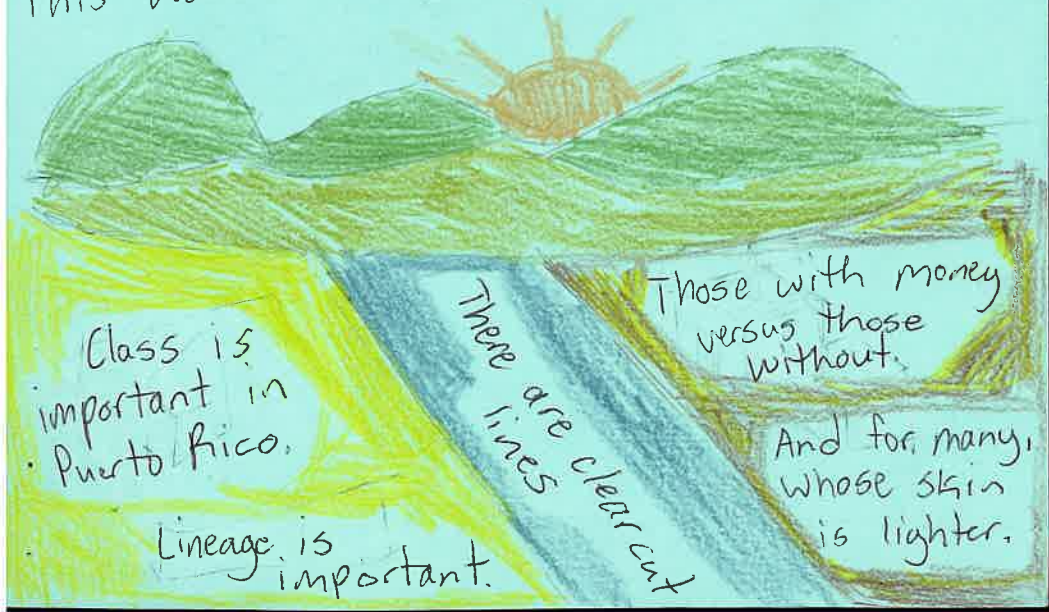 This
Class is
important in
Puerto Rico.
Lineage is
important.
There are clear cut
lines
Those with money
versus those
without.
And for many,
whose skin
is lighter.